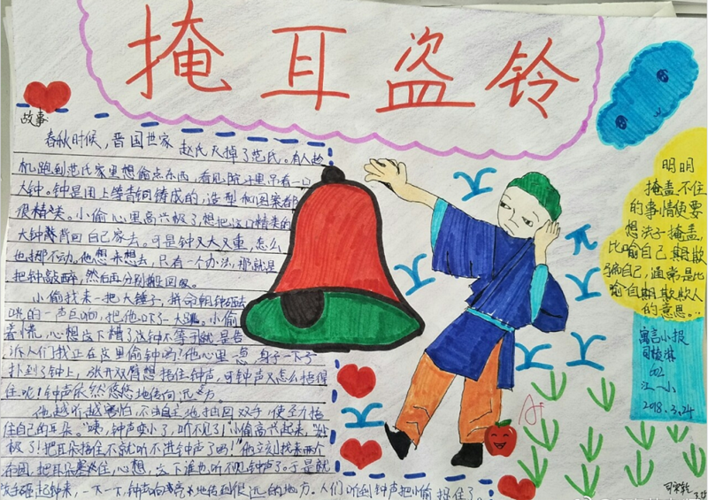 掩耳盗铃
故事
春秋时候,晋国世家赵氏灭掉了范氏。有人趁
机跑到范氏家里想偷点东西,看见院子里吊着一口
大钟。钟是用上等青铜铸成的,造型和图案都
很精美。小偷心里高兴极了,想把这口精美的
大钟背回自己家去。可是钟又大又重,怎么
也挪不动。他想来想去,只有一个办法,那就是
把钟敲碎,然后再分别搬回家。
小偷找来一把大锤子,拼命朝钟砸去
的一声巨响,把他吓了一大跳。小偷
着慌,心想这下糟了,这钟不等于是
诉人们我正在这里偷钟吗?他心里一急,身子一下子
扑到了钟上,张开双臂想捂住钟声,可钟声又怎么捂得
住呢!钟声依然悠悠地传向远方。
他越听越害怕,不由自主地抽回双手,使劲捂
住自己的耳朵。"咦,钟声变小了,听不见了!"小偷高兴起来,
极了!把耳朵捂住不就听不进钟声了吗!"他立刻找来两个
布团,把耳朵塞住,心想,这下谁也听不见钟声了。于是就
起钟来,一下一下,钟声响亮地传到很远的地方。人们听到钟声把小偷捉住了。
明明
掩盖不住
的事情偏要
想法子掩盖,
比喻自己欺
骗自己,通常是比
喻自欺欺人
的意思。
寓言小报
四2
江一小
2018.3.24